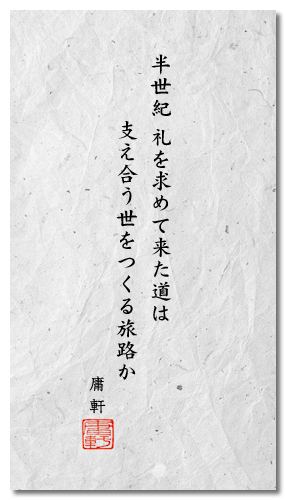 半世紀 礼を求めて来た道は
支え合う世をつくる旅路か
庸軒
庸軒